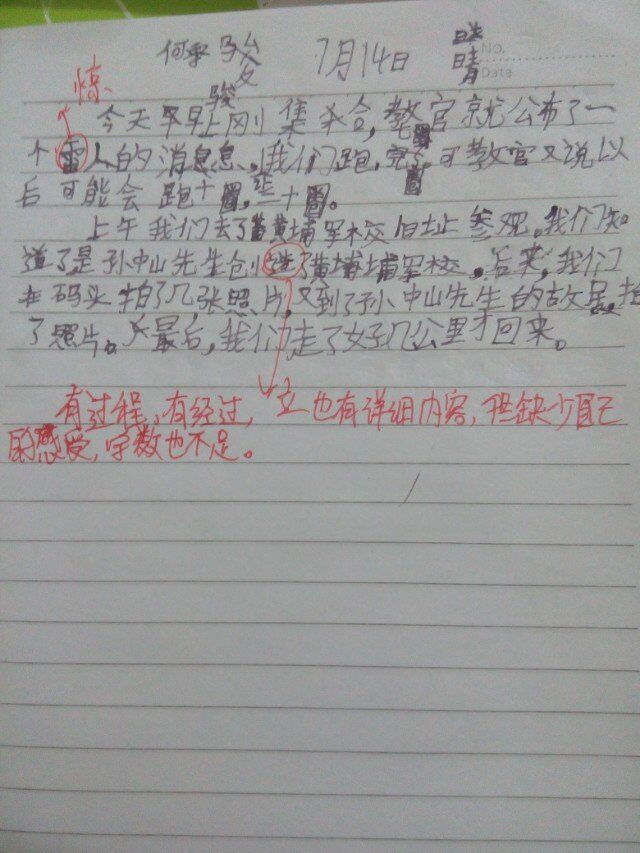 何 骏 7月14日 晴
No.
Date
惊
今天早早上刚集合,教官就公布了一
个雷人的消息息,我们跑,完了,可教官又说以
后可能会跑十圈,二十圈。
上午我们去了黄黄埔军校旧址参观。我们知
道了是孙中山先生创造了黄埔埔军校。后来,我们
在码头拍了几张照片,又到了孙中山先生的故居,拍
了照片。最后,我们走了好几公里才回来。
立
有过程,有经过,也有详细内容,但缺少自己
的感受,字数也不足。